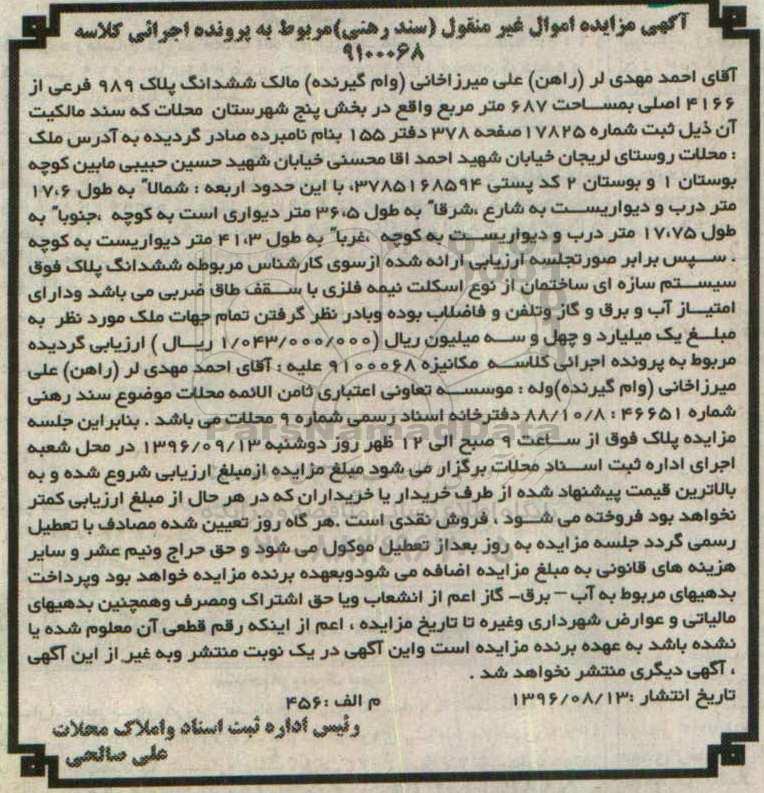 آگهی مزایده اموال غیر منقول (سند رهنی)مربوط به پرونده اجرائی کلاسه
۹۱۰۰۰۶۸
آقای احمد مهدی لر (راهن) علی میرزاخانی (وام گیرنده) مالک ششدانگ پلاک ۹۸۹ فرعی از
۴۱۶۶ اصلی بمساحت ۶۸۷ متر مربع واقع در بخش پنج شهرستان محلات که سند مالکیت
آن ذیل ثبت شماره ۱۷۸۲۵صفحه ۳۷۸ دفتر ۱۵۵ بنام نامبرده صادر گردیده به آدرس ملک
: محلات روستای لریجان خیابان شهید احمد اقا محسنی خیابان شهید حسین حبیبی مابین کوچه
بوستان ۱ و بوستان ۲ کد پستی ۳۷۸۵۱۶۸۵۹۴، با این حدود اربعه : شمالاً به طول ۱۷،۶
متر درب و دیواریست به شارع ،شرقاً به طول ۳۶،۵ متر دیواری است به کوچه ،جنوباً به
طول ۱۷،۷۵ متر درب و دیواریست به کوچه ،غرباً به طول ۴۱،۳ متر دیواریست به کوچه
. سپس برابر صورتجلسه ارزیابی ارائه شده ازسوی کارشناس مربوطه ششدانگ پلاک فوق
سیستم سازه ای ساختمان از نوع اسکلت نیمه فلزی با سقف طاق ضربی می باشد ودارای
امتیاز آب و برق و گاز وتلفن و فاضلاب بوده وبادر نظر گرفتن تمام جهات ملک مورد نظر به
مبلغ یک میلیارد و چهل و سه میلیون ریال (۱/۰۴۳/۰۰۰/۰۰۰ ریال ) ارزیابی گردیده
مربوط به پرونده اجرائی کلاسه مکانیزه ۹۱۰۰۰۶۸ علیه : آقای احمد مهدی لر (راهن) علی
میرزاخانی (وام گیرنده)وله : موسسه تعاونی اعتباری ثامن الائمه محلات موضوع سند رهنی
شماره ۴۶۶۵۱ : ۸۸/۱۰/۸ دفترخانه اسناد رسمی شماره ۹ محلات می باشد . بنابراین جلسه
مزایده پلاک فوق از ساعت ۹ صبح الی ۱۲ ظهر روز دوشنبه ۱۳۹۶/۰۹/۱۳ در محل شعبه
اجرای اداره ثبت اسناد محلات برگزار می شود مبلغ مزایده ازمبلغ ارزیابی شروع شده و به
بالاترین قیمت پیشنهاد شده از طرف خریدار یا خریداران که در هر حال از مبلغ ارزیابی کمتر
نخواهد بود فروخته می شود ، فروش نقدی است .هر گاه روز تعیین شده مصادف با تعطیل
رسمی گردد جلسه مزایده به روز بعداز تعطیل موکول می شود و حق حراج ونیم عشر و سایر
هزینه های قانونی به مبلغ مزایده اضافه می شودوبعهده برنده مزایده خواهد بود وپرداخت
بدهیهای مربوط به آب – برق– گاز اعم از انشعاب ویا حق اشتراک ومصرف وهمچنین بدهیهای
مالیاتی و عوارض شهرداری وغیره تا تاریخ مزایده ، اعم از اینکه رقم قطعی آن معلوم شده یا
نشده باشد به عهده برنده مزایده است واین آگهی در یک نوبت منتشر وبه غیر از این آگهی
، آگهی دیگری منتشر نخواهد شد .
تاریخ انتشار :۱۳۹۶/۰۸/۱۳ م الف :۴۵۶
رئیس اداره ثبت اسناد واملاک محلات
علی صالحی
ParsNamadData